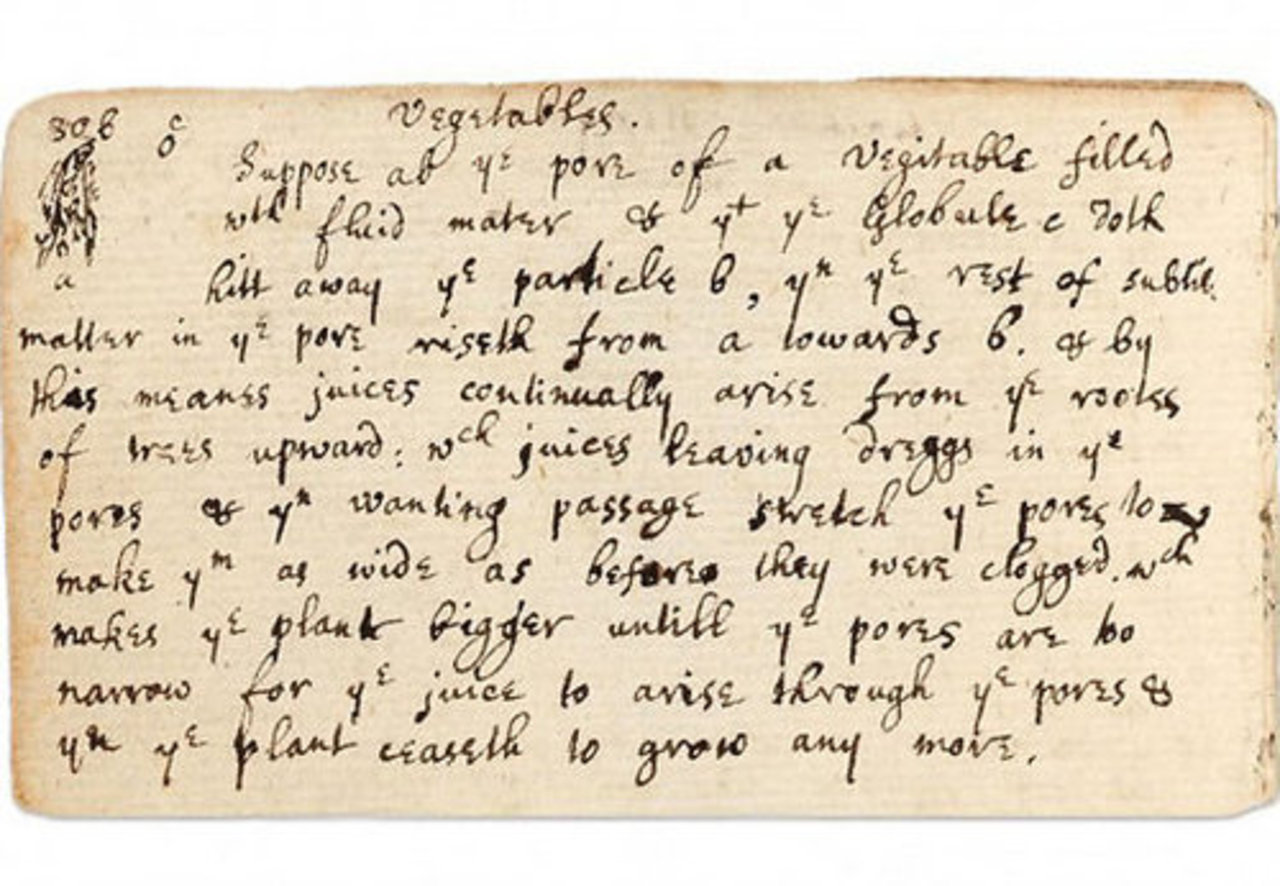 306 c Vegetables.
Suppose ab yᵉ pore of a Vegitable filled
wᵗʰ fluid mater & yᵗ yᵉ Globule c doth
hitt away yᵉ particle b, yⁿ yᵉ rest of subtil
matter in yᵉ pore riseth from a towards b. & by
this meanes juices continually arise from yᵉ rootes
of trees upward: wᶜʰ juices leaving dreggs in yᵉ
pores & yⁿ wanting passage stretch yᵉ pores to
make yᵐ as wide as before they were clogged. wᶜʰ
makes yᵉ plant bigger untill yᵉ pores are too
narrow for yᵉ juice to arise through yᵉ pores &
yⁿ yᵉ plant ceaseth to grow any more.
a